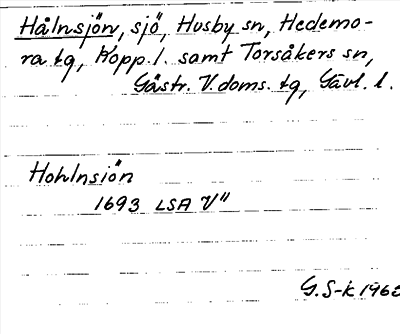 Hålnsjön, sjö, Husby sn, Hedemo-
ra tg, Kopp. l. samt Torsåkers sn,
Gästr. V. doms. tg, Gävl. l.
Hohlnsiön
1693 LSA V"
G. S-k 1965